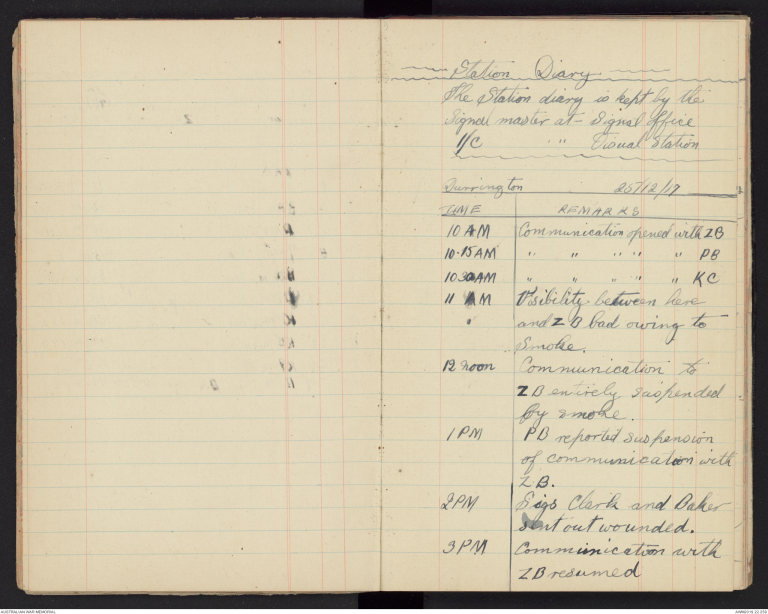 Station Diary
The Station diary is kept by the
Signal master at - Signal Office
I/C " " Visual Station
Durrington 25/12/17
TIME REMARKS
10 AM Communication opened with ZB
10.15 AM " " " " " PB
10.30 AM " " " " " KC
11 AM Visibility between here
" and ZB bad owing to
smoke.
12 noon Communication to
ZB entirely suspended
by smoke.
1 PM PB reported suspension
of communication with
ZB.
2 PM Sigs Clark and Baker
sent out wounded.
3 PM Communication with
ZB resumed
AUSTRALIAN WAR MEMORIAL